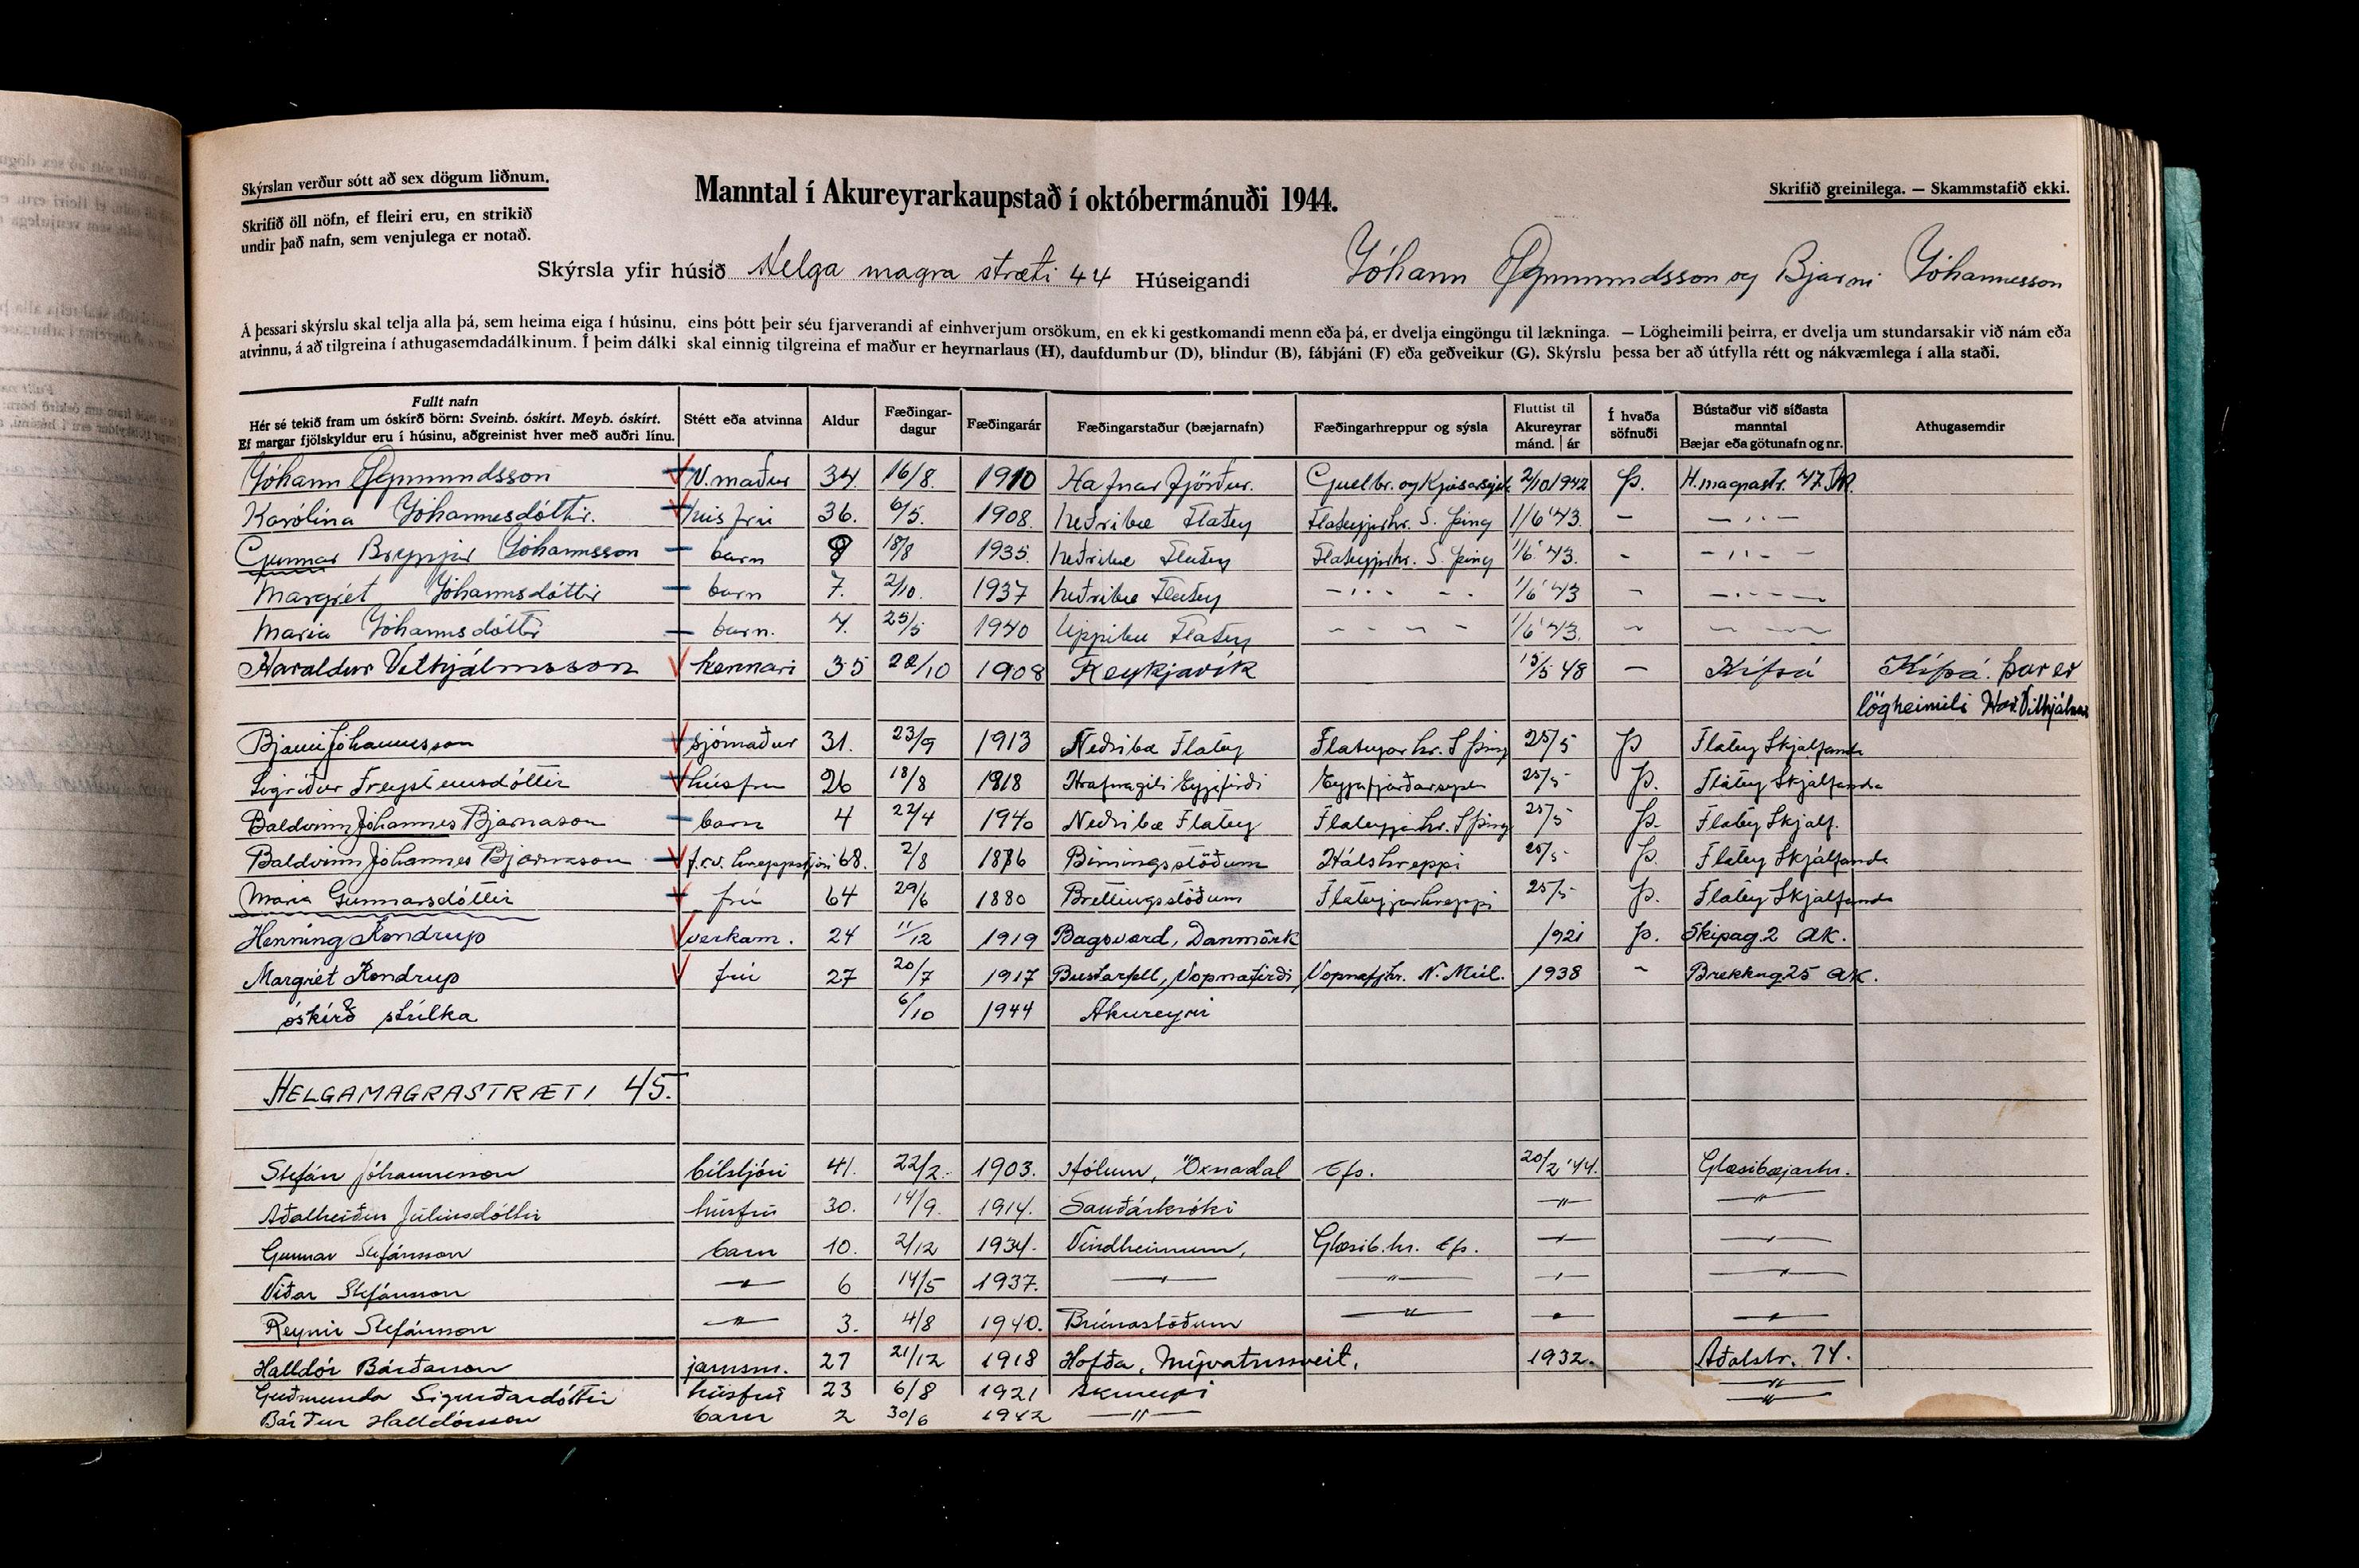 Skýrslan verður sótt að sex dögum liðnum.
Skrifið öll nöfn, ef fleiri eru, en strikið
undir það nafn, sem venjulega er notað.
Manntal í Akureyrarkaupstað í októbermánuði 1944.
Skrifið greinilega. — Skammstafið ekki.
Skýrsla yfir húsið Helga magra stræti 44 Húseigandi Jóhann Ögmundsson og Bjarni Jóhannesson
Á þessari skýrslu skal telja alla þá, sem heima eiga í húsinu, eins þótt þeir séu fjarverandi af einhverjum orsökum, en ekki gestkomandi menn eða þá, er dvelja eingöngu til lækninga. — Lögheimili þeirra, er dvelja um stundarsakir við nám eða
atvinnu, á að tilgreina í athugasemdadálkinum. Í þeim dálki skal einnig tilgreina ef maður er heyrnarlaus (H), daufdumbur (D), blindur (B), fábjáni (F) eða geðveikur (G). Skýrslu þessa ber að útfylla rétt og nákvæmlega í alla staði.
Fullt nafn
Hér sé tekið fram um óskírð börn: Sveinb. óskírt. Meyb. óskírt.
Ef margar fjölskyldur eru í húsinu, aðgreinist hver með auðri línu.
Stétt eða atvinna
Aldur
Fæðingar-
dagur
Fæðingarár
Fæðingarstaður (bæjarnafn)
Fæðingarhreppur og sýsla
Fluttist til
Akureyrar
mánd. | ár
Í hvaða
söfnuði
Bústaður við síðasta
manntal
Bæjar eða götunafn og nr.
Athugasemdir
Jóhann Ögmundsson V. maður 34. 16/8. 1910 Hafnarfjörður. Gullbr. og Kjósarsýsla 2/10 1942 Þ. H. magrastr. 47
Karólína Jóhannesdóttir. húsfrú 36. 6/5. 1908. Neðribæ Flatey Flateyjarhr. S. Þing 1/6 '43. — — " —
Gunnar Breyfjör Jóhannsson — barn 9 18/8 1935. Neðribæ Flatey Flateyjarhr. S. Þing 1/6 '43. - — " — —
Margrét Jóhannsdóttir — barn 7. 2/10. 1937 Neðribæ Flatey — " — — 1/6 '43 - — — —
María Jóhannsdóttir — barn. 4. 25/5 1940 Uppibæ Flatey — — — — 1/6 '43. - — — —
Haraldur Vilhjálmsson kennari 35 20/10 1908 Reykjavík 15/5 48 — Kífsá Kífsá. Þar er
lögheimili Har. Vilhjálms
Bjarni Jóhannesson sjómaður 31. 23/9 1913 Neðribæ Flatey Flateyjarhr. S Þing 25/5 Þ Flatey Skjálfanda
Sigríður Freysteinsdóttir húsfrú 26 18/8 1918 Hrafnagili Eyjafirði Eyjafjarðarsýslu 25/5 Þ. Flatey Skjálfanda
Baldvin Jóhannes Bjarnason — barn 4 22/4 1940 Neðribæ Flatey Flateyjarhr. S Þing 25/5 Þ. Flatey Skjálf.
Baldvinn Jóhannes Bjarnason f.v. hreppstjóri 68. 2/8 1876 Birningsstöðum Hálshreppi 25/5 Þ. Flatey Skjálfanda
María Gunnarsdóttir frú 64 29/6 1880 Brettingsstöðum Flateyjarhreppi 25/5 Þ. Flatey Skjálfanda
Henning Kondrup verkam. 24 11/12 1919 Bagsværd, Danmörk 1921 Þ. Skipag. 2 AK.
Margrét Kondrup frú 27 20/7 1917 Bustarfell, Vopnafirði Vopnafjhr. N. Múl. 1938 " Brekkug. 25 AK.
óskírð stúlka 6/10 1944 Akureyri
HELGAMAGRASTRÆTI 45.
Stefán Jóhannesson bílstjóri 41. 22/2. 1903. Hólum, Öxnadal Efs. 20/2 '44. Glæsibæjarhr.
Aðalheiður Júlíusdóttir húsfrú 30. 14/9. 1914. Sauðárkróki — " — — " —
Gunnar Stefánsson barn 10. 2/12 1934. Vindheimum, Glæsib.hr. Efs. — " — — " —
Viðar Stefánsson — " — 6 14/5 1937. — " — — " — — " — — " —
Reynir Stefánsson — " — 3. 4/8 1940. Brúnastöðum — " — — " — — " —
Halldór Bárðarson járnsm. 27 21/12 1918 Hofða, Mývatnssveit, 1932. Aðalstr. 74.
Guðmunda Sigurðardóttir húsfrú 23 6/8 1921 Akureyri — " —
Bárður Halldórsson barn 2 30/6 1942 — " — — " —